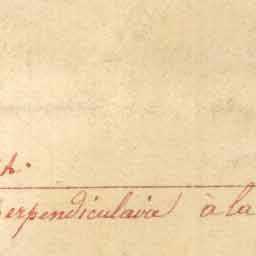 erpendiculaire à la